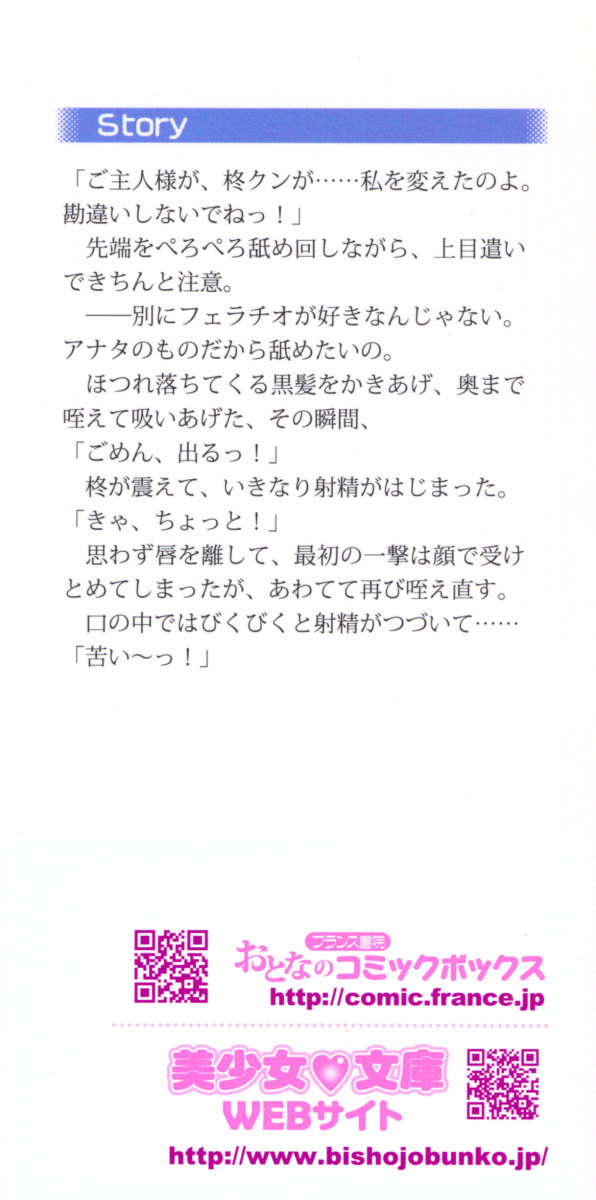 Story
「ご主人様が、柊クンが……私を変えたのよ。
勘違いしないでねっ！」
　先端をぺろぺろ舐め回しながら、上目遣い
できちんと注意。
　――別にフェラチオが好きなんじゃない。
アナタのものだから舐めたいの。
　ほつれ落ちてくる黒髪をかきあげ、奥まで
咥えて吸いあげた、その瞬間、
「ごめん、出るっ！」
　柊が震えて、いきなり射精がはじまった。
「きゃ、ちょっと！」
　思わず唇を離して、最初の一撃は顔で受け
とめてしまったが、あわてて再び咥え直す。
　口の中ではびくびくと射精がつづいて……
「苦い～っ！」
フランス書院
おとなのコミックボックス
http://comic.france.jp
美少女♥文庫
WEBサイト
http://www.bishojobunko.jp/